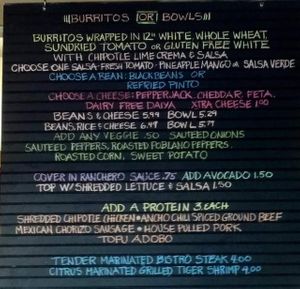 BURRITOS OR BOWLS
BURRITOS WRAPPED IN 12" WHITE, WHOLE WHEAT,
SUNDRIED TOMATO OR GLUTEN FREE WHITE
WITH CHIPOTLE LIME CREMA & SALSA
CHOOSE ONE SALSA- FRESH TOMATO · PINEAPPLE MANGO OR SALSA VERDE
CHOOSE A BEAN: BLACKBEANS OR
REFRIED PINTO
CHOOSE A CHEESE: PEPPERJACK, CHEDDAR, FETA,
DAIRY FREE DAIYA XTRA CHEESE 1.00
BEANS & CHEESE 5.99 BOWL 5.29
BEANS, RICE & CHEESE 6.49 BOWL 5.79
ADD ANY VEGGIE .50 SAUTEED ONIONS
SAUTEED PEPPERS, ROASTED POBLANO PEPPERS,
ROASTED CORN, SWEET POTATO
COVER IN RANCHERO SAUCE .75 ADD AVOCADO 1.50
TOP W/ SHREDDED LETTUCE & SALSA 1.50
ADD A PROTEIN 3. EACH
SHREDDED CHIPOTLE CHICKEN · ANCHO CHILI SPICED GROUND BEEF
MEXICAN CHORIZO SAUSAGE · HOUSE PULLED PORK
TOFU ADOBO
TENDER MARINATED BISTRO STEAK 4.00
CITRUS MARINATED GRILLED TIGER SHRIMP 4.00